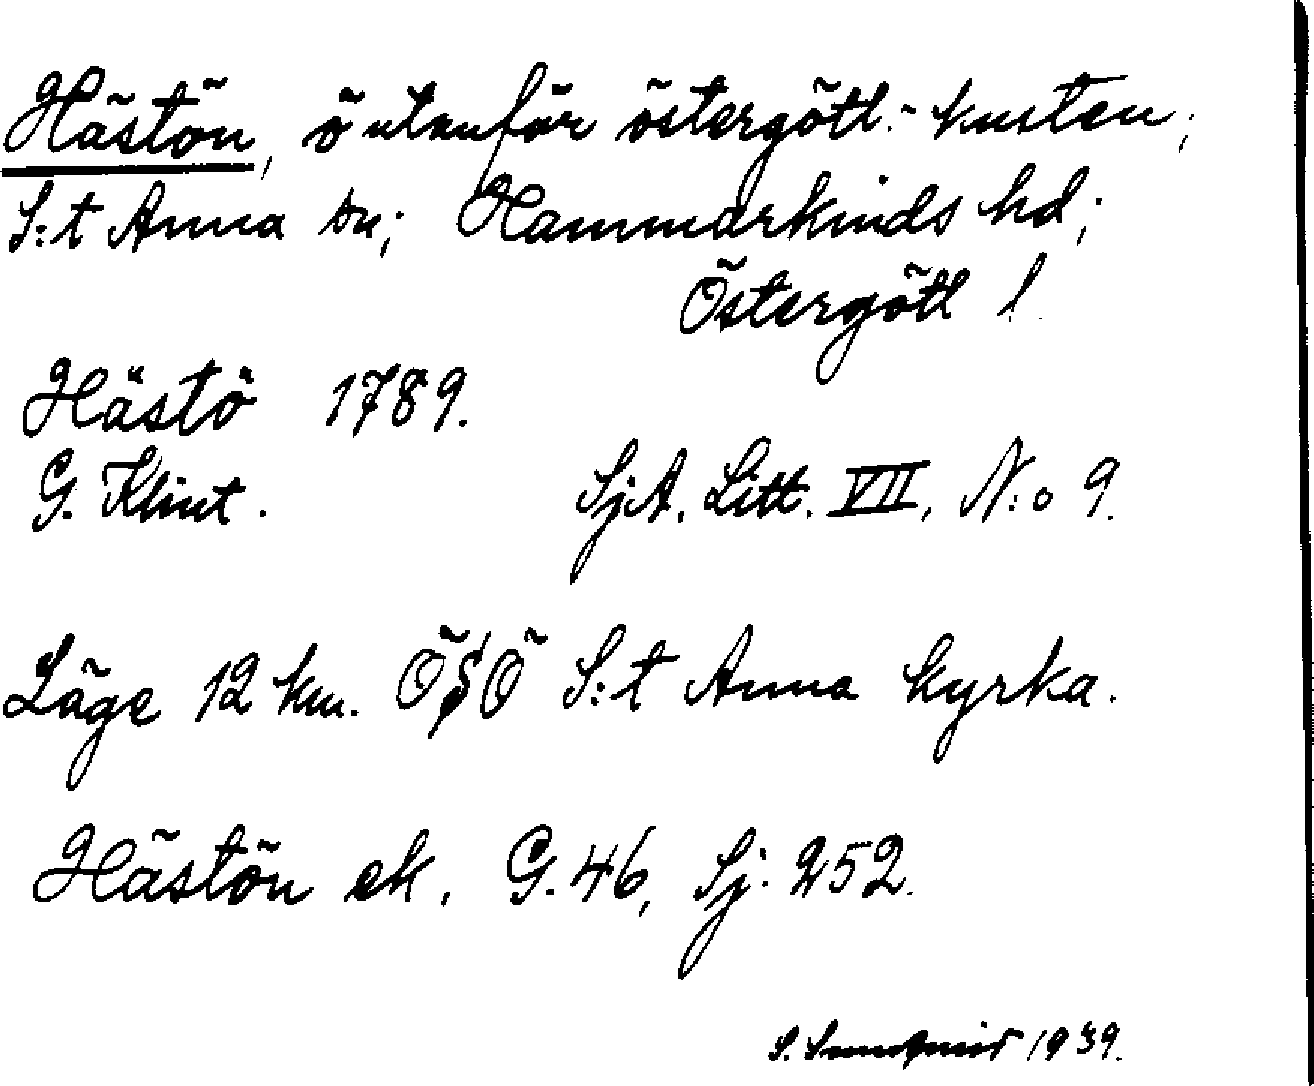 Hästön, ö utanför östergötl.-kusten;
S:t Anna sn; Hammarkinds hd;
Östergötl l.
Hästö 1789.
G. Klint. SjA. Litt. VII, N:o 9.
Läge 12 km. ÖSÖ S:t Anna kyrka.
Hästön ek. G. 46, Sj: 252.
S. 1939.